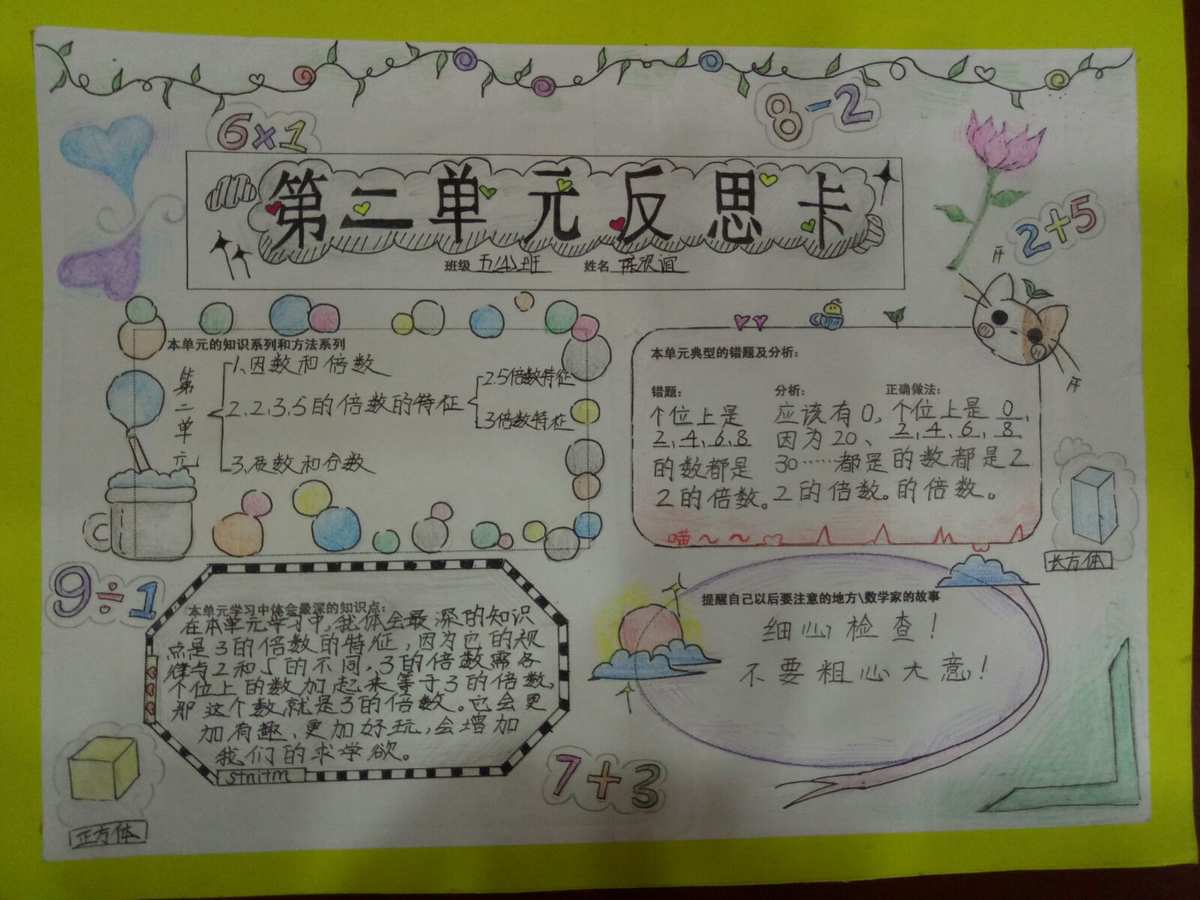 6×1
8-2
第二单元反思卡
2+5
班级 五(4)班 姓名
本单元的知识系列和方法系列
第二单元
1、因数和倍数
2、2、3、5的倍数的特征
2、5倍数特征
3倍数特征
3、质数和分数
本单元典型的错题及分析：
错题： 分析： 正确做法：
个位上是 应该有0, 个位上是 0、
2、4、6、8 因为20、 2、4、6、8
的数都是 30……都是 的数都是2
2的倍数。 2的倍数。 的倍数。
喵~~
长方体
9÷1
本单元学习中体会最深的知识点：
在本单元学习中,我体会最深的知识
点是3的倍数的特征,因为它的规
律与2和5的不同,3的倍数需各
个位上的数加起来等于3的倍数,
那这个数就是3的倍数。它会更
加有趣、更加好玩,会增加
我们的求学欲。
提醒自己以后要注意的地方\数学家的故事
细心检查！
不要粗心大意！
7+3
正方体